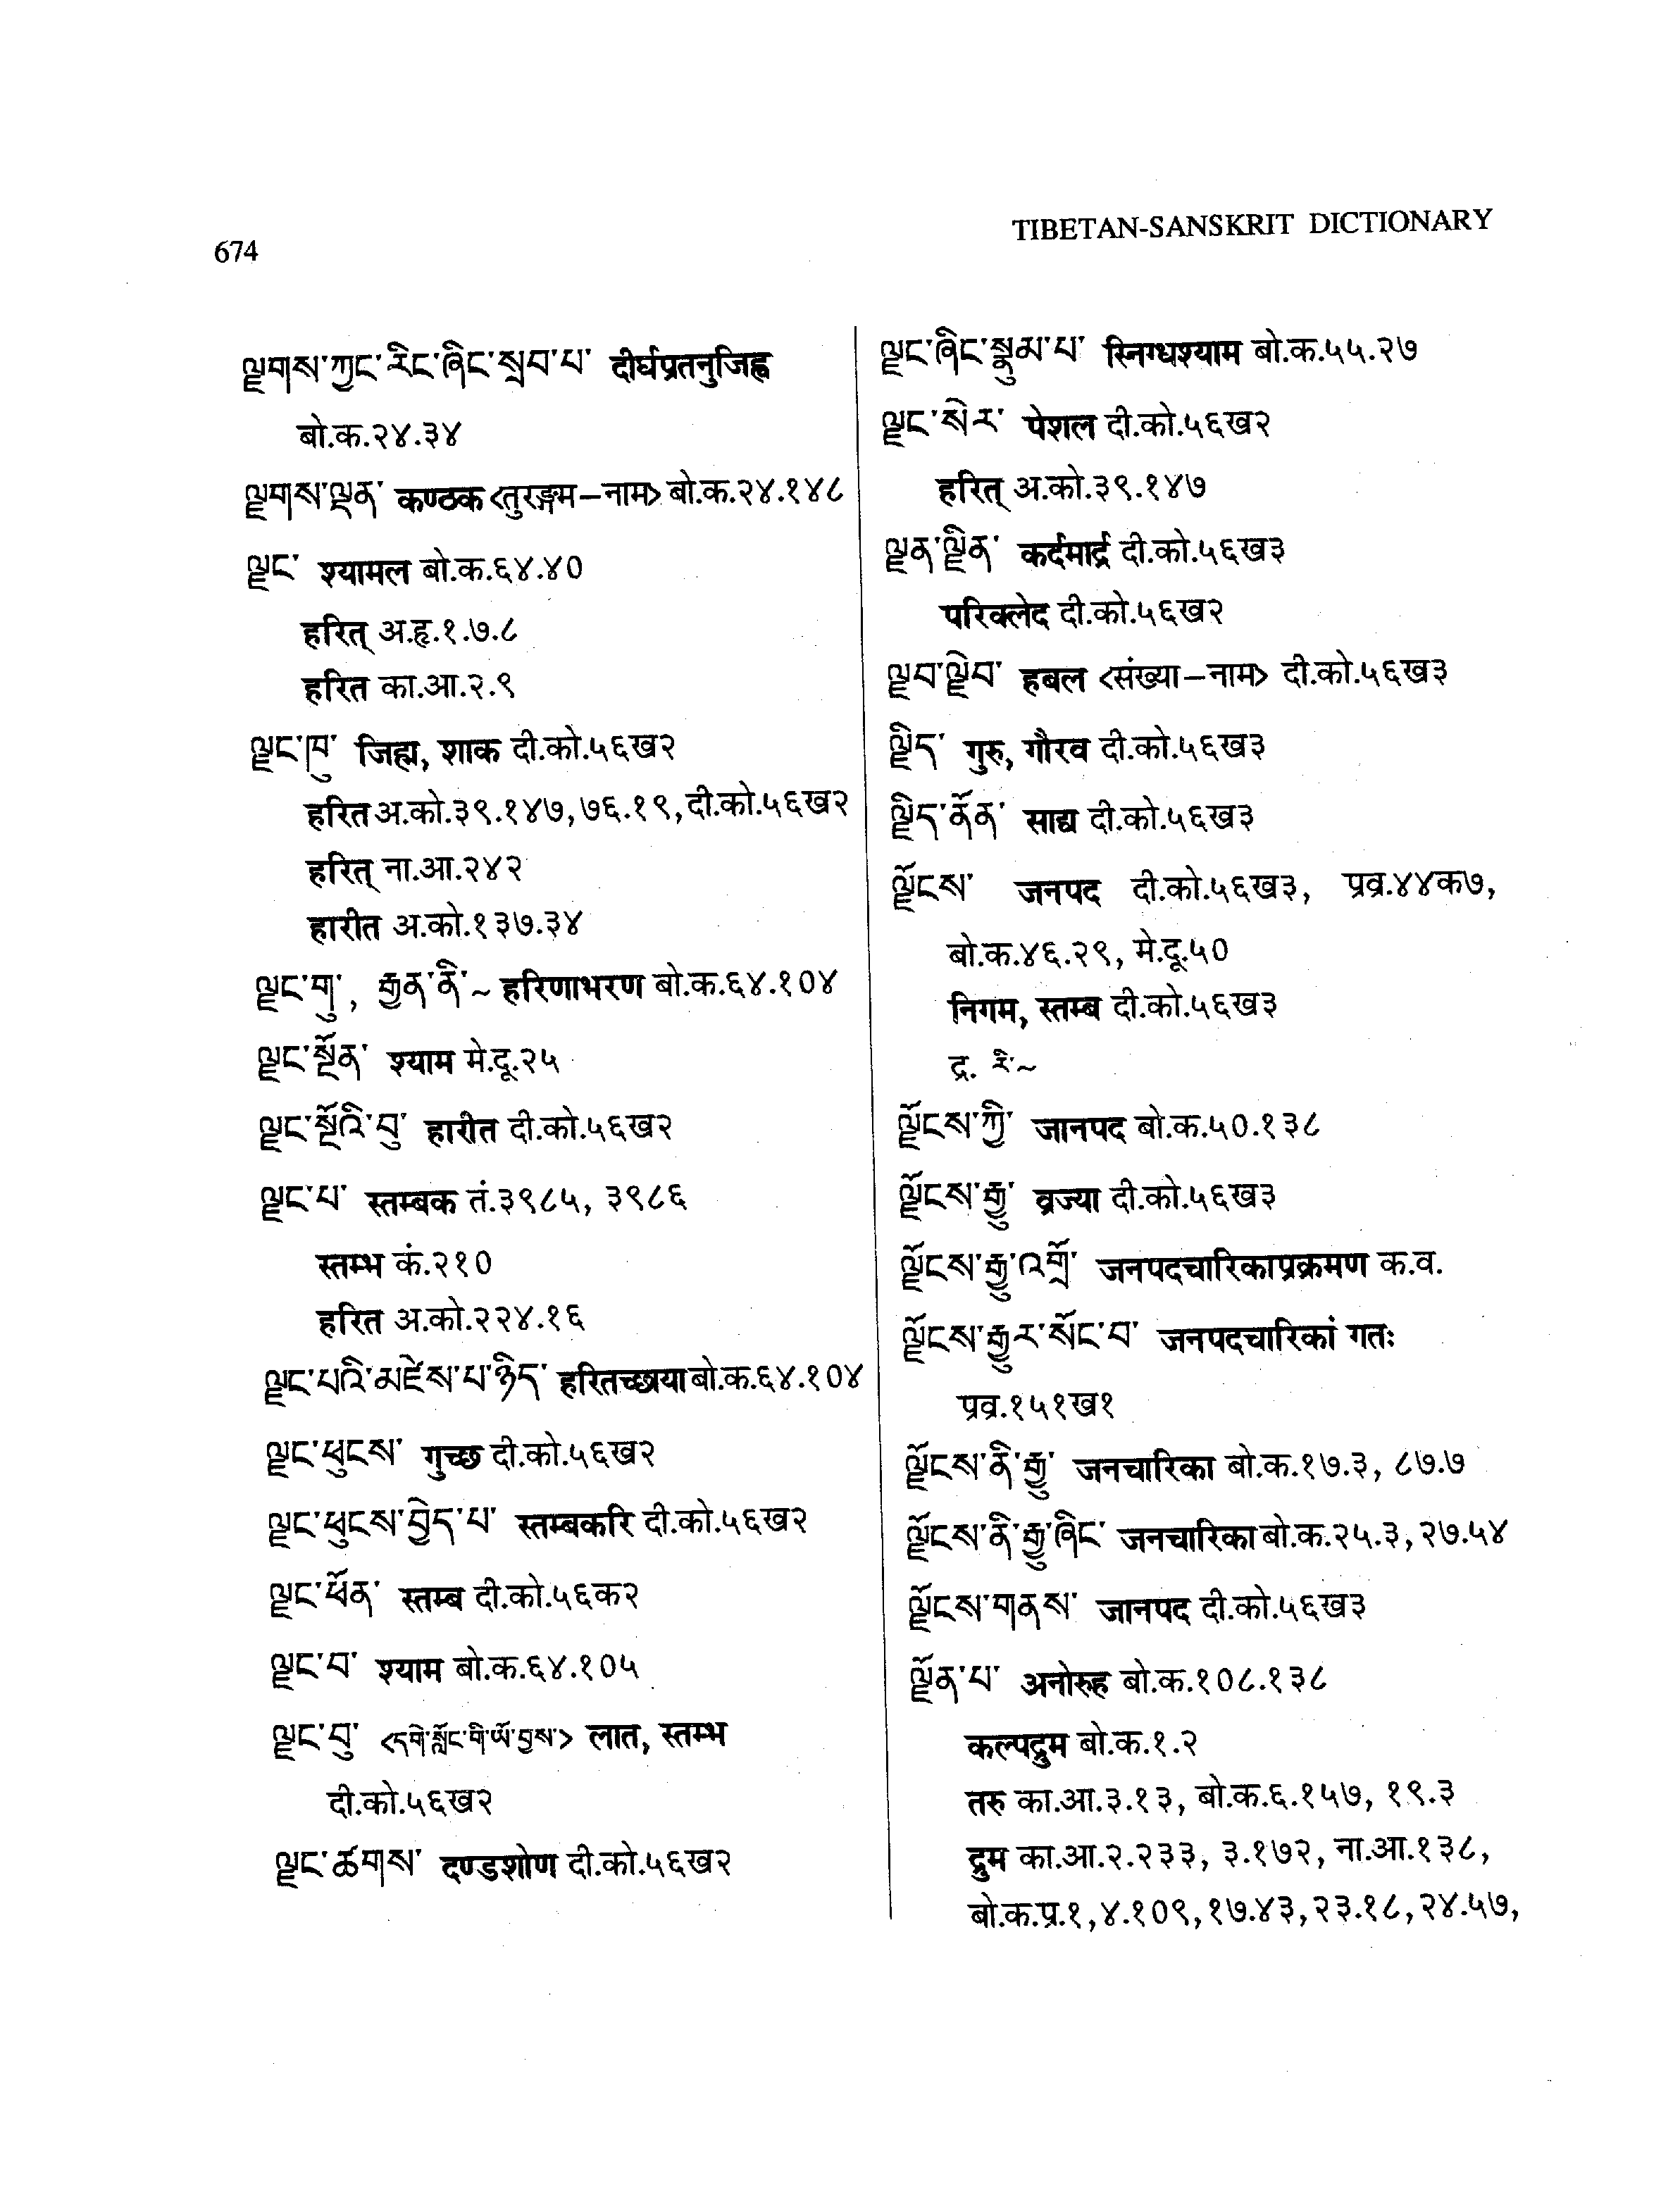 674
TIBETAN-SANSKRIT DICTIONARY
ལྗགས་ཀྱང་རིང་ཞིང་སྲབ་པ་ दीर्घप्रतनुजिह्व
बो.क.२४.३४
ལྗགས་ལྡན་ कण्ठक <तुरङ्गम–नाम> बो.क.२४.१४८
ལྗང་ श्यामल बो.क.६४.४०
हरित् अ.हृ.१.७.८
हरित का.आ.२.९
ལྗང་ཁུ་ जिह्म, शाक दी.को.५६ख२
हरित अ.को.३९.१४७, ७६.१९, दी.को.५६ख२
हरित् ना.आ.२४२
हारीत अ.को.१३७.३४
ལྗང་གུ་, རྒྱན་ནི་~ हरिणाभरण बो.क.६४.१०४
ལྗང་སྔོན་ श्याम मे.दू.२५
ལྗང་སྔོའི་བུ་ हारीत दी.को.५६ख२
ལྗང་པ་ स्तम्बक तं.३९८५, ३९८६
स्तम्भ कं.२१०
हरित अ.को.२२४.१६
ལྗང་པའི་མཛེས་པ་ཉིད་ हरितच्छाया बो.क.६४.१०४
ལྗང་ཕུངས་ गुच्छ दी.को.५६ख२
ལྗང་ཕུངས་བྱེད་པ་ स्तम्बकरि दी.को.५६ख२
ལྗང་ཕོན་ स्तम्ब दी.को.५६क२
ལྗང་བ་ श्याम बो.क.६४.१०५
ལྗང་བུ་ <དགེ་སློང་གི་ཡོ་བྱས་> लात, स्तम्भ
दी.को.५६ख२
ལྗང་ཚགས་ दण्डशोण दी.को.५६ख२
ལྗང་ཞིང་སྣུམ་པ་ स्निग्धश्याम बो.क.५५.२७
ལྗང་སེར་ पेशल दी.को.५६ख२
हरित् अ.को.३९.१४७
ལྗན་ལྗིན་ कर्दमार्द्र दी.को.५६ख३
परिक्लेद दी.को.५६ख२
ལྗབ་ལྗེབ་ हबल <संख्या–नाम> दी.को.५६ख३
ལྗིད་ गुरु, गौरव दी.को.५६ख३
ལྗིད་ནོན་ साद्य दी.को.५६ख३
ལྗོངས་ जनपद दी.को.५६ख३, प्रव्र.४४क७,
बो.क.४६.२९, मे.दू.५०
निगम, स्तम्ब दी.को.५६ख३
द्र. རི་~
ལྗོངས་ཀྱི་ जानपद बो.क.५०.१३८
ལྗོངས་རྒྱུ་ व्रज्या दी.को.५६ख३
ལྗོངས་རྒྱུ་འགྲོ་ जनपदचारिकाप्रक्रमण क.व.
ལྗོངས་རྒྱུར་སོང་བ་ जनपदचारिकां गतः
प्रव्र.१५१ख१
ལྗོངས་ནི་རྒྱུ་ जनचारिका बो.क.१७.३, ८७.७
ལྗོངས་ནི་རྒྱུ་ཞིང་ जनचारिका बो.क.२५.३, २७.५४
ལྗོངས་གནས་ जानपद दी.को.५६ख३
ལྗོན་པ་ अनोरुह बो.क.१०८.१३८
कल्पद्रुम बो.क.१.२
तरु का.आ.३.१३, बो.क.६.१५७, १९.३
द्रुम का.आ.२.२३३, ३.१७२, ना.आ.१३८,
बो.क.प्र.१, ४.१०९, १७.४३, २३.१८, २४.५७,